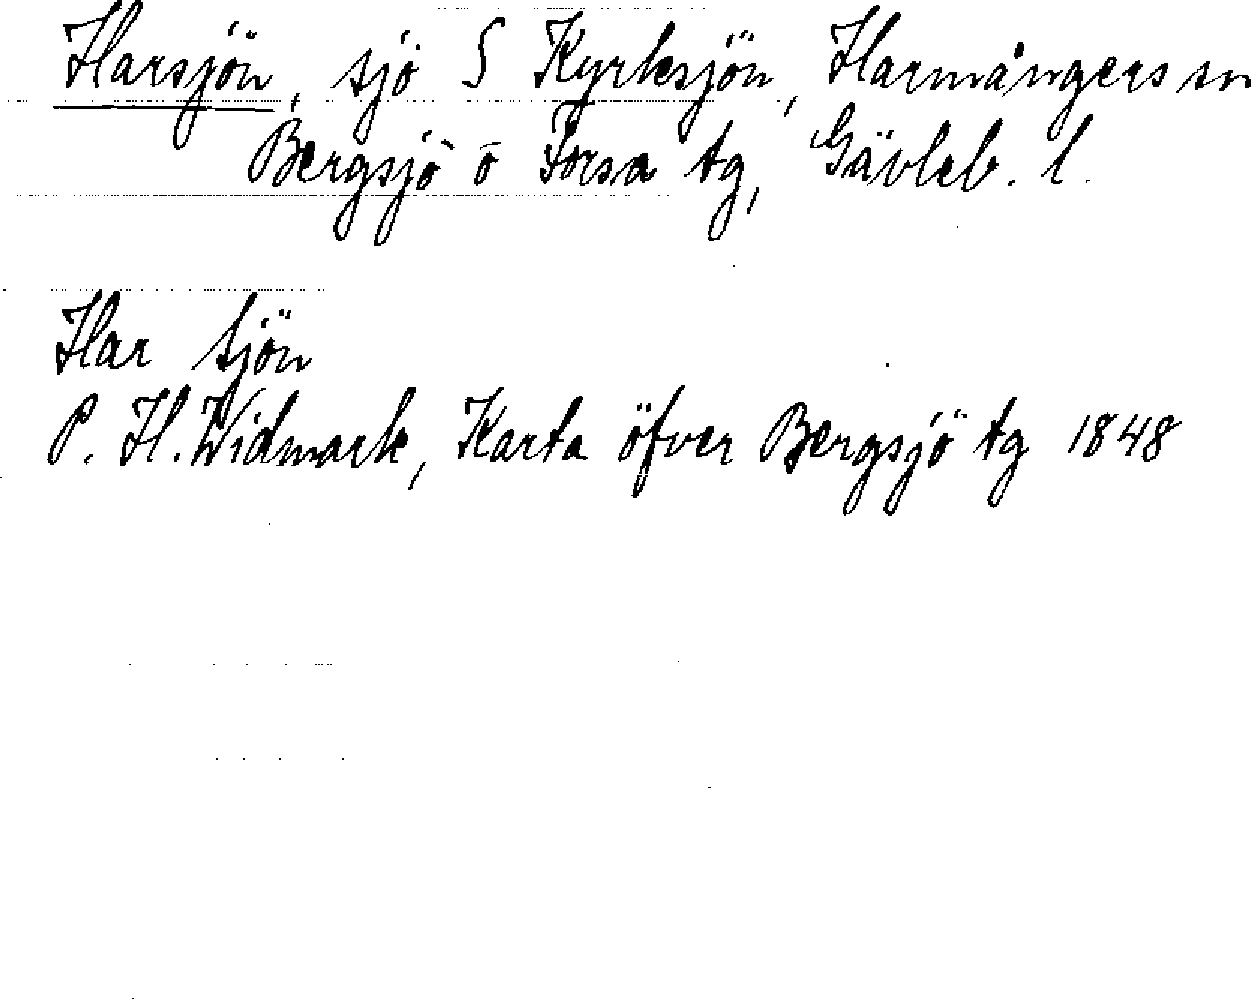 Harsjön, sjö S Kyrksjön, Harmångers sn
Bergsjö o Forsa tg, Gävleb. l.
Har sjön
P. H. Widmark, Karta öfver Bergsjö tg 1848